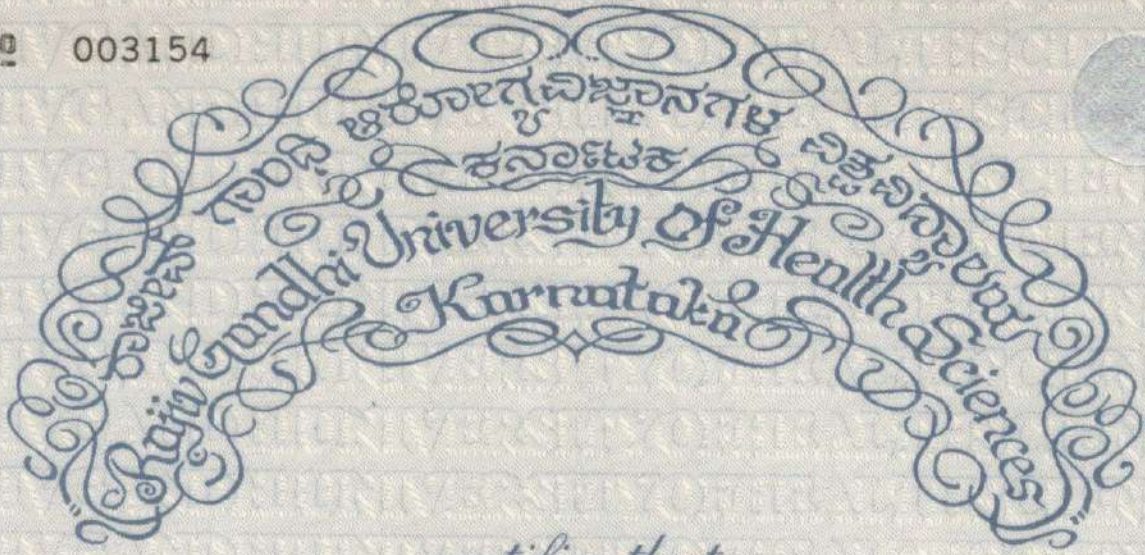 003154
ರಾಜೀವ್ ಗಾಂಧಿ ಆರೋಗ್ಯವಿಜ್ಞಾನಗಳ ವಿಶ್ವವಿದ್ಯಾಲಯ
ಕರ್ನಾಟಕ
Rajiv Gandhi University Of Health Sciences
Karnataka